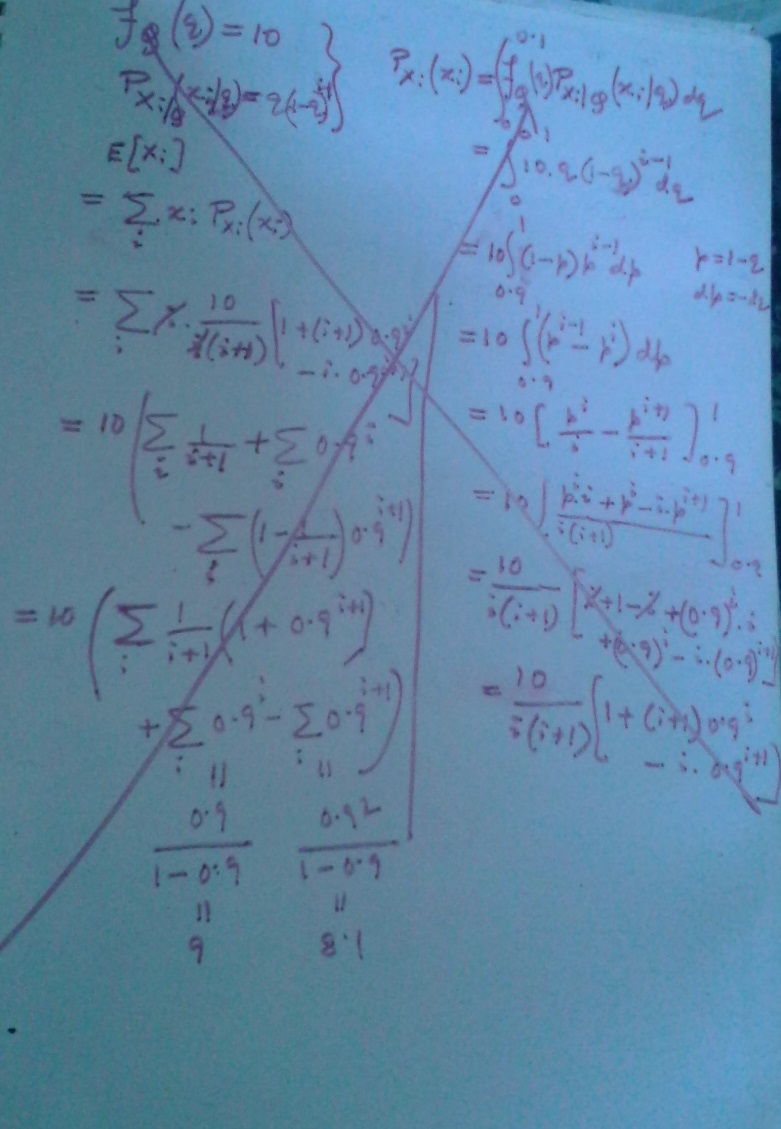 f_Q(q) = 10
P_{X_i/Q}(x_i/q) = q(1-q)^{i-1}
E[X_i]
= Σ_i x_i P_{X_i}(x_i)
= Σ_i i · 10/(i(i+1)) [1 + (i+1) 0.9^i
- i · 0.9^{i+1}]
= 10 (Σ_i 1/(i+1) + Σ_i 0.9^i
- Σ_i (1 - 1/(i+1)) 0.9^{i+1})
= 10 (Σ_i 1/(i+1) (1 + 0.9^{i+1})
+ Σ_i 0.9^i - Σ_i 0.9^{i+1})
|| ||
0.9/(1-0.9) 0.9²/(1-0.9)
|| ||
9 8.1
P_{X_i}(x_i) = ∫_0^{0.1} f_Q(q) P_{X_i/Q}(x_i/q) dq
= ∫_0^{0.1} 10.q (1-q)^{i-1} dq
= 10 ∫_{0.9}^1 (1-p) p^{i-1} dp p = 1-q
dp = -dq
= 10 ∫_{0.9}^1 (p^{i-1} - p^i) dp
= 10 [p^i/i - p^{i+1}/(i+1)]_{0.9}^1
= 10 [(p^i i + p^i - i.p^{i+1})/(i(i+1))]_{0.9}^1
= 10/(i(i+1)) [i+1-i +(0.9)^i.i
+(0.9)^i - i.(0.9)^{i+1}]
= 10/(i(i+1)) [1 + (i+1) 0.9^i
- i. 0.9^{i+1}]